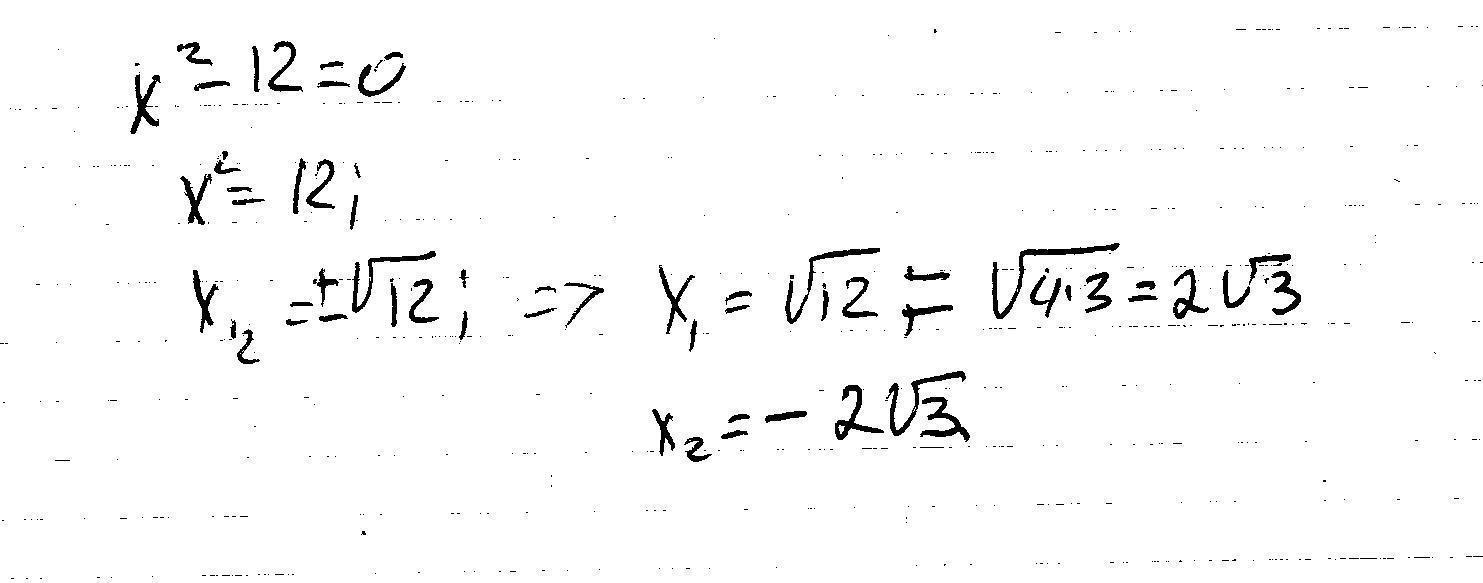 x² - 12 = 0
x² = 12;
x₁,₂ = ±√12; => x₁ = √12 = √4·3 = 2√3
x₂ = - 2√3